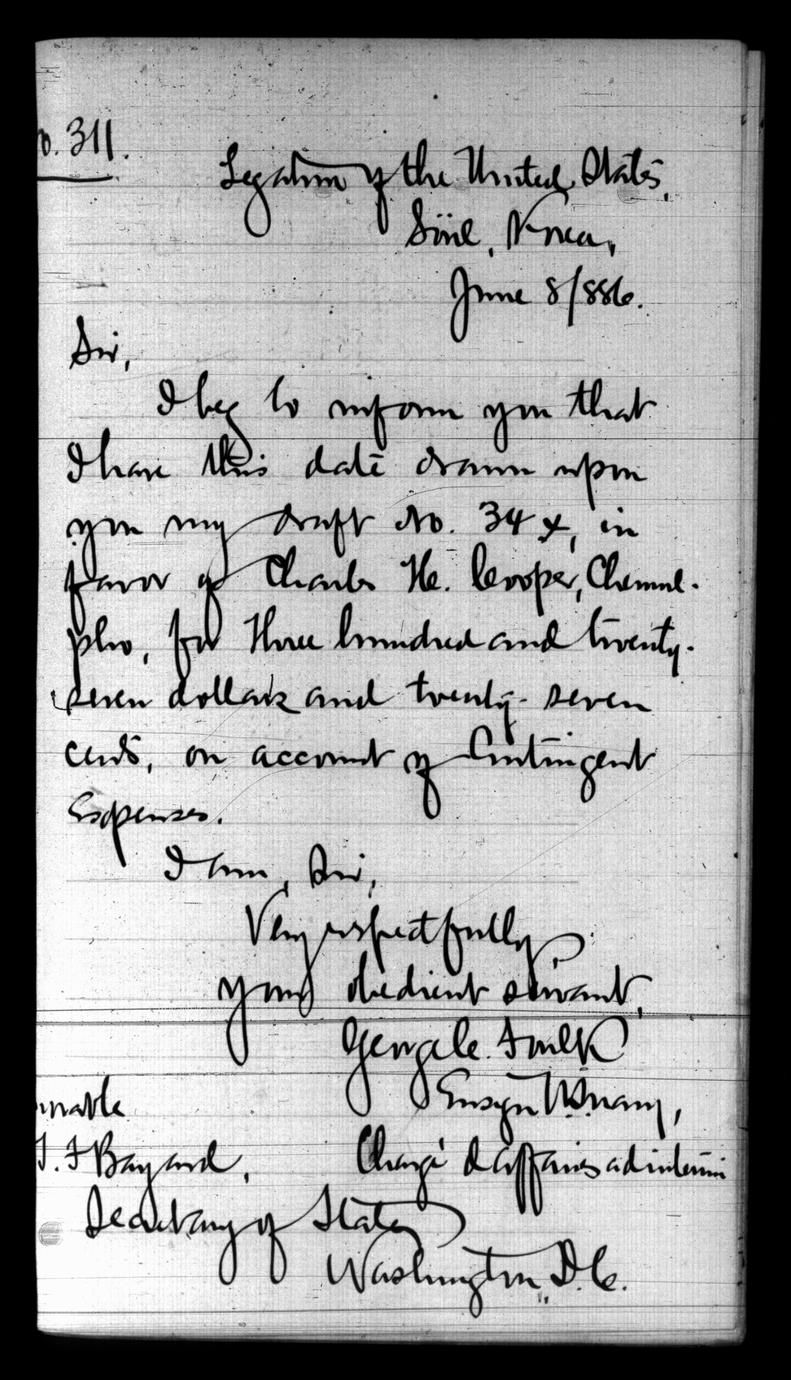 o. 311.
Legation of the United States,
Söul, Korea,
June 8/886.
Sir,
I beg to inform you that
I have this date drawn upon
you my draft No. 34 x, in
favor of Charles H. Cooper, Chemul-
pho, for three hundred and twenty-
seven dollars and twenty-seven
cents, on account of Contingent
Expenses.
I am, Sir,
Very respectfully,
your obedient servant,
George C. Foulk
Ensign U.S. Navy,
norable
T. F Bayard,
Chargé d'affaires ad interim
Secretary of State,
Washington, D.C.